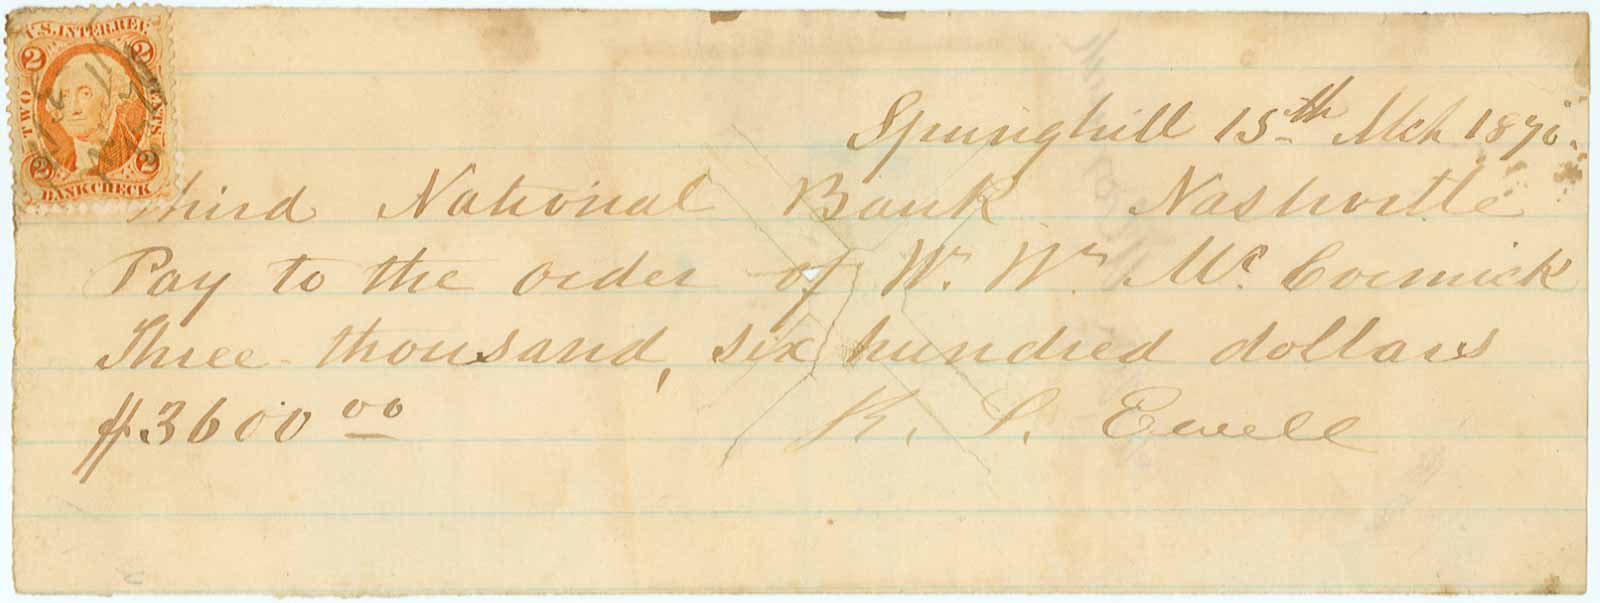 U.S. INTER. REV.
2 2
TWO CENTS
2 2
BANK CHECK
Springhill 15th Mch 1870.
Third National Bank Nashville
Pay to the order of Wm. Wm. McCormick
Three thousand, six hundred dollars
$3600 00
R. S. Ewell